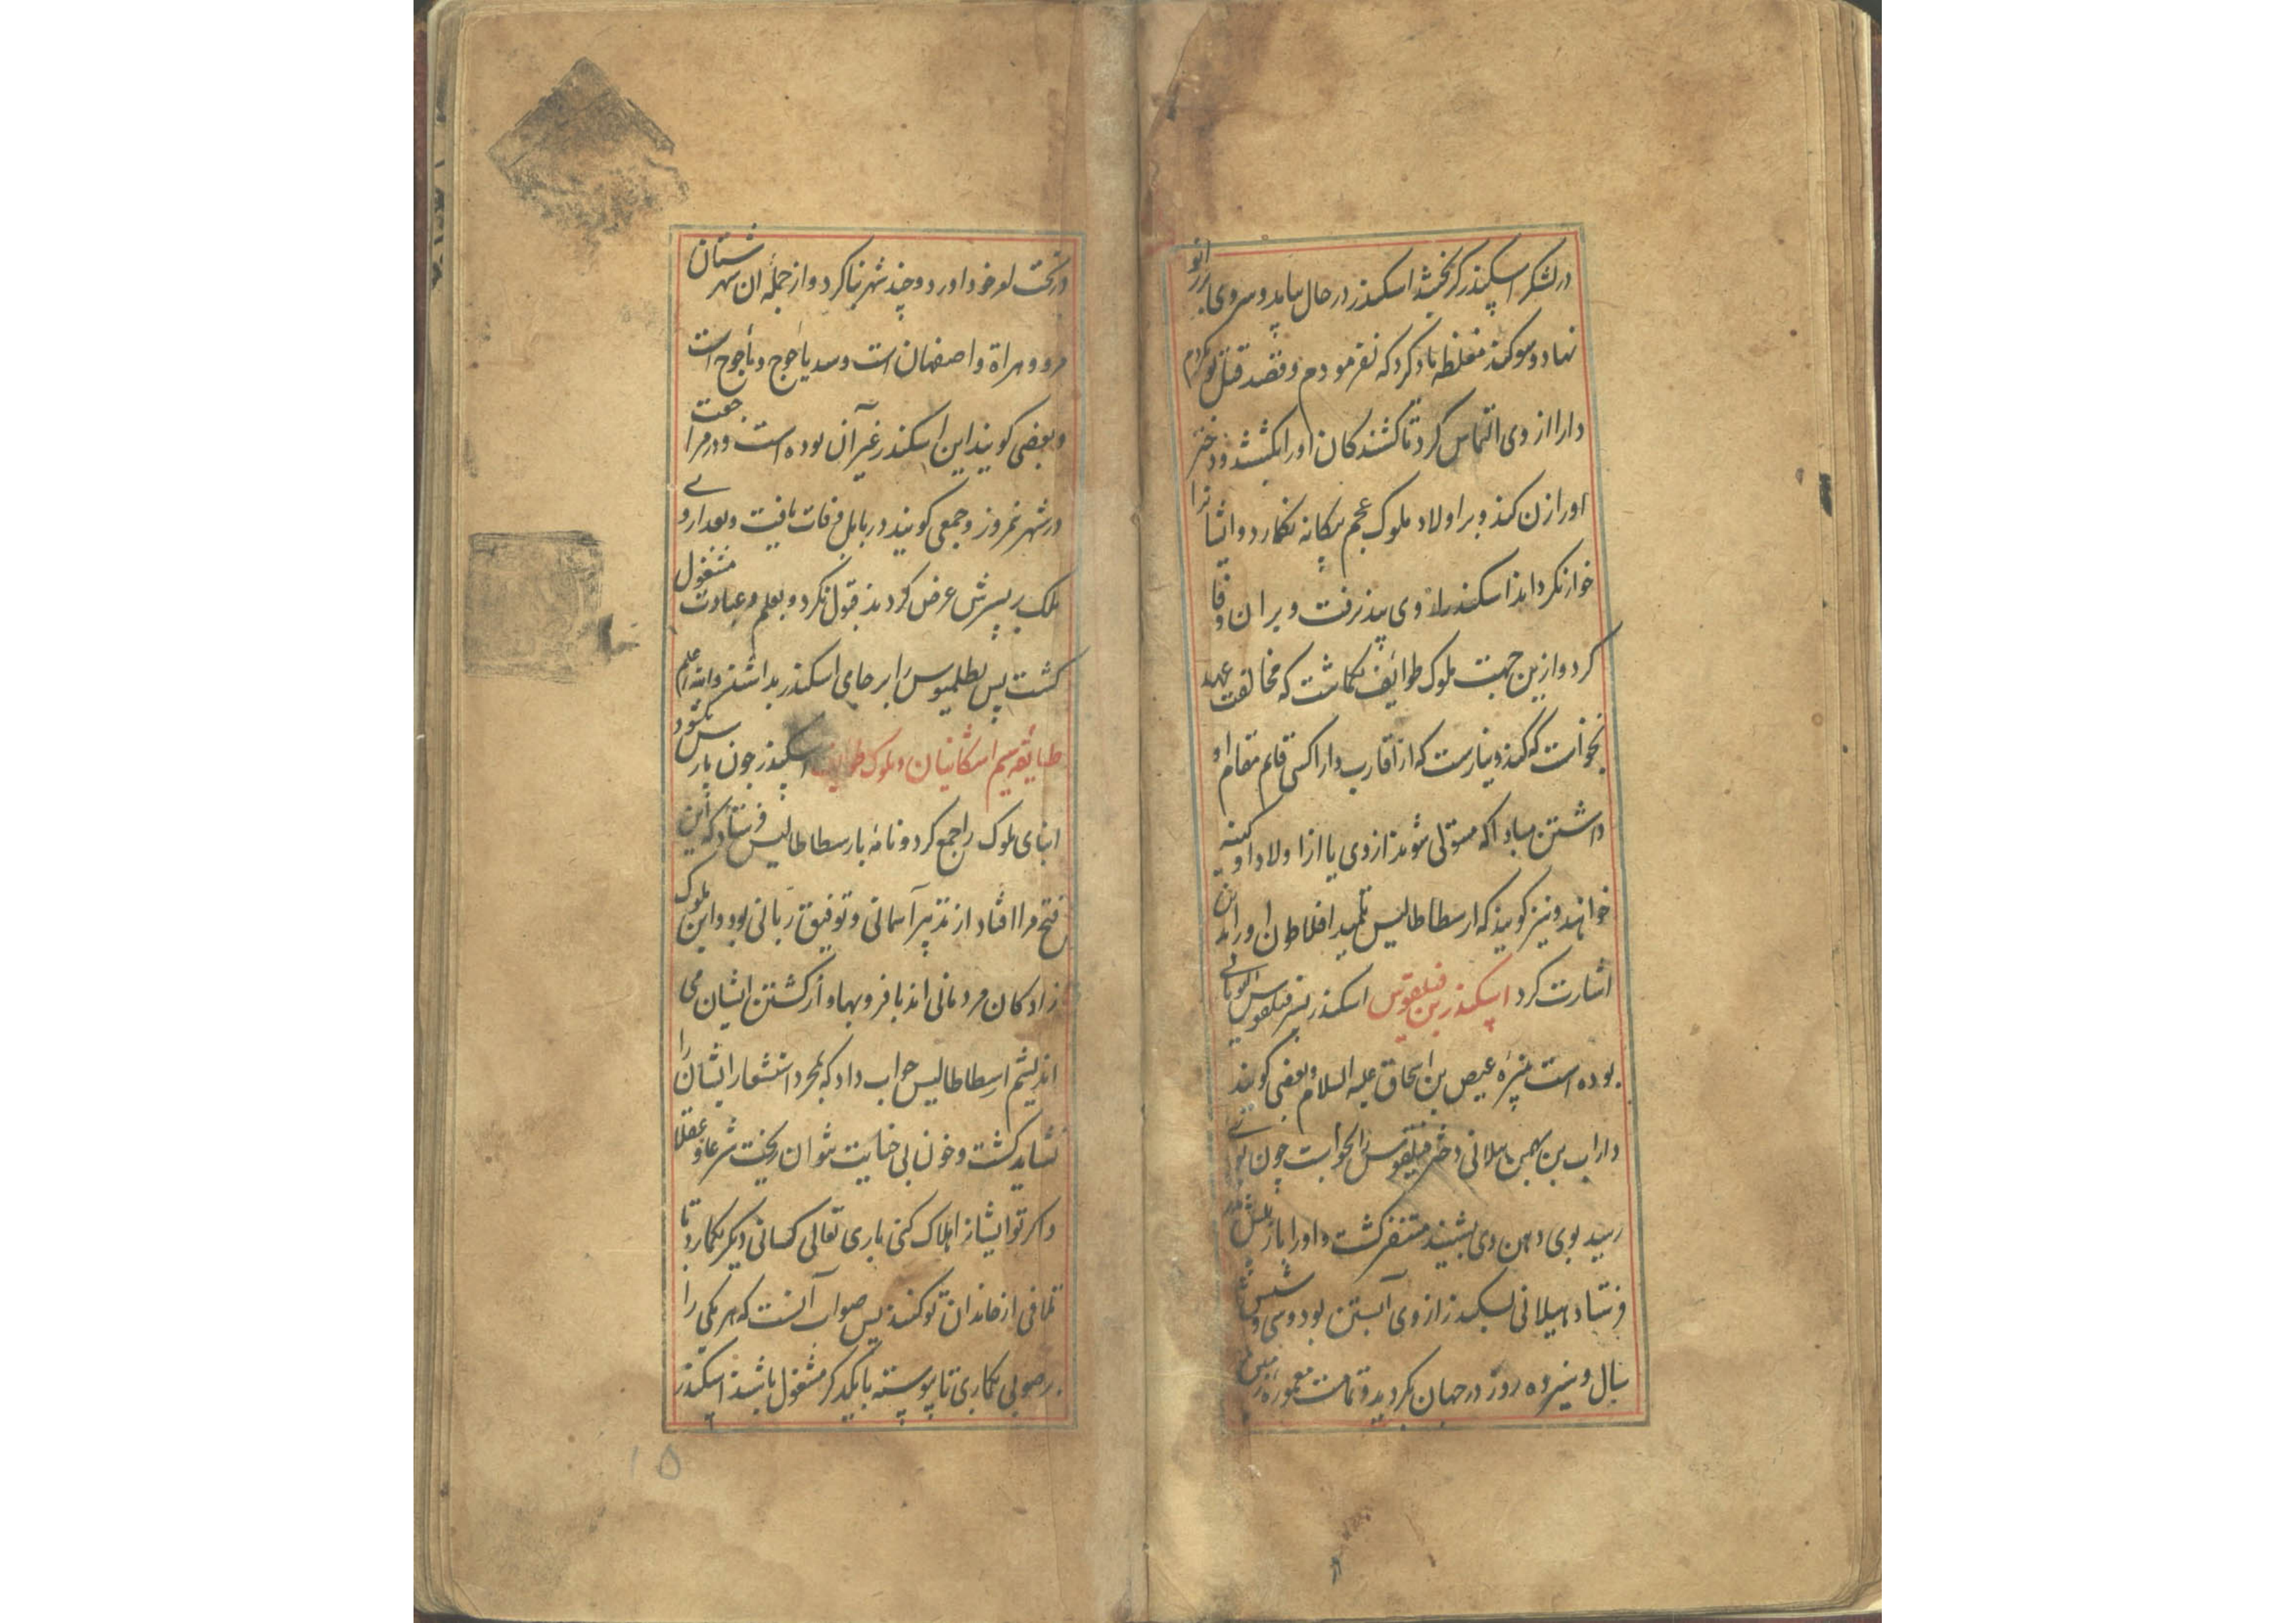 در لشکر اسکندر گریختند اسکندر در حال بیامد و سر وی بر زانو
نهاد و سوکند مغلظه یاد کرد که نفرمودم و قصد قتل تو نکردم
دارا از وی التماس کرد تا کشندکان او را بکشد و دختر
او را زن کند و بر اولاد ملوک عجم بیکانه نکمارد و ایشانرا
خوار نکرداند اسکندر از وی بپذیرفت و بر آن وفا
کرد و ازین جهت ملوک طوائف بکماشت که مخالفت عهد
نخواست که کند و نیارست که از اقارب دارا کسی قایم مقام او
داشتن مبادا که مستولی شوند از وی یا از اولاد او کینه
خواهند و نیز کویند که ارسطاطالیس تلمید افلاطون او را بدین
اشارت کرد اسکندر بن فیلقوس اسکندر پسر فیلقوس یونانی
بوده است نبیره عیص بن اسحاق علیه السلام و بعضی کویند
داراب بن بهمن هیلانی دختر فیلقوس را بخواست چون بوی
رسید بوی دهن وی بشنید متنفر کشت و او را باز پیش پدر
فرستاد هیلانی باسکندر از وی آبستن بود و سی و شش
سال و سیزده روز در جهان بکردید و تمامت معموره زمین
در تحت امر خود اورد و چند شهر بنا کرد و از جمله آن شهرستان
مرو و هراة و اصفهان است و سد یاجوج و ماجوج است
و بعضی کویند این اسکندر غیر آن بوده است و در مراجعت
در شهر نمروز و جمعی کویند در بابل وفات یافت و بعد از وی
ملک بر پسرش عرض کردند قبول نکرد و بعلم و عبادت مشغول
کشت پس بطلمیوس را بر جای اسکندر بداشتند والله اعلم
طبایفه سیم اشکانیان و ملوک طوایف اسکندر چون پارس بکشود
ابنای ملوک را جمع کرد و نامه بارسطاطالیس فرستاد که این
فتح مرا افتاد از تدبیر آسمانی و توفیق ربانی بود و این ملوک
زادکان مردمانی اند با فر و بها و از کشتن ایشان می
اندیشم ارسطاطالیس جواب داد که بمجرد استشعار ایشان را
نشاید کشت و خون بی خیانت نتوان ریخت شرعا و عقلا
و اکر تو ایشانرا هلاک کنی باری تعالی کسانی دیکر بکمارد تا
تلافی از خاندان تو کنند پس صواب آنست که هر یکی را
بر صوبی بکماری تا پیوسته با یکدیکر مشغول باشند اسکندر
۱۵